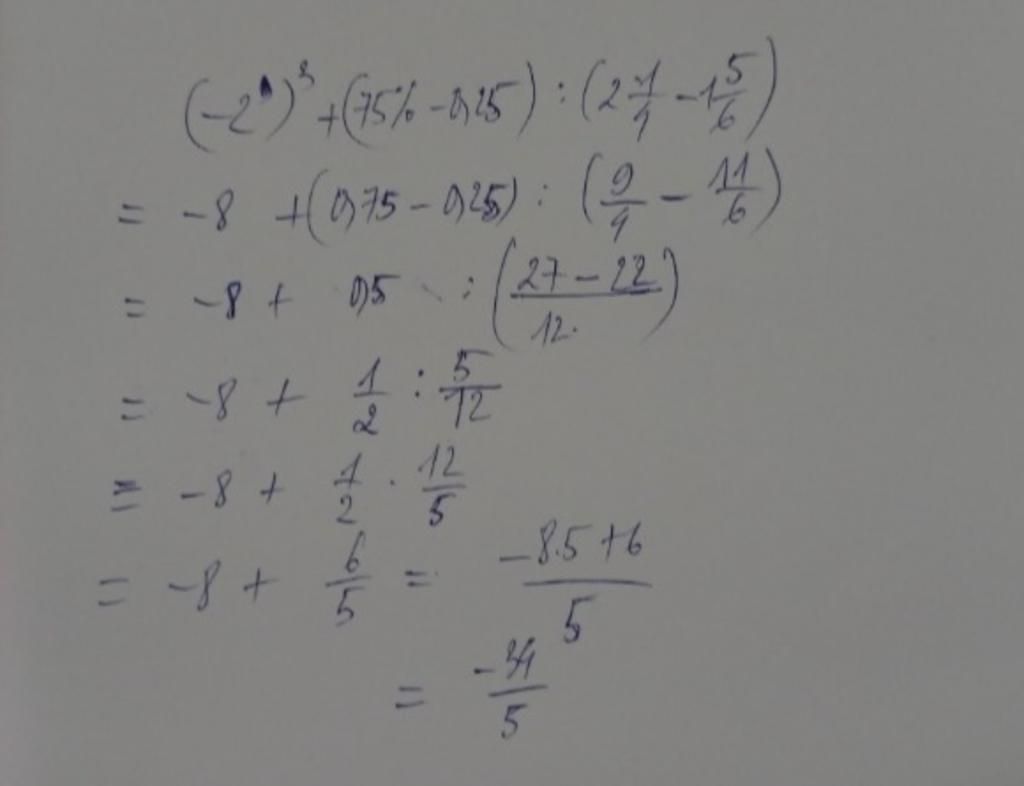 (-2)³ + (75% - 0,25) : (2 1/4 - 1 5/6)
= -8 + (0,75 - 0,25) : (9/4 - 11/6)
= -8 + 0,5 : ((27 - 22)/12)
= -8 + 1/2 : 5/12
= -8 + 1/2 . 12/5
= -8 + 6/5 = (-8.5 + 6)/5
= -34/5